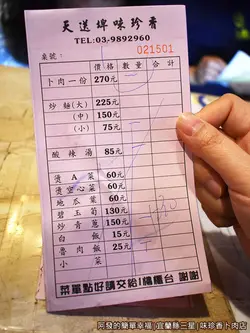 天送埤味珍香
TEL:03-9892960
桌號: 021501
價格 數量 合計
卜肉一份 270元
炒麵(大) 225元
(中) 150元
(小) 75元
酸辣湯 85元
燙A菜 60元
燙空心菜 60元
地瓜葉 60元
碧玉筍 130元
炒青蔥 150元
白飯 15元
魯肉飯 25元
小菜
菜單點好請交給1樓櫃台 謝謝
阿發的簡單幸福 宜蘭縣三星 味珍香卜肉店